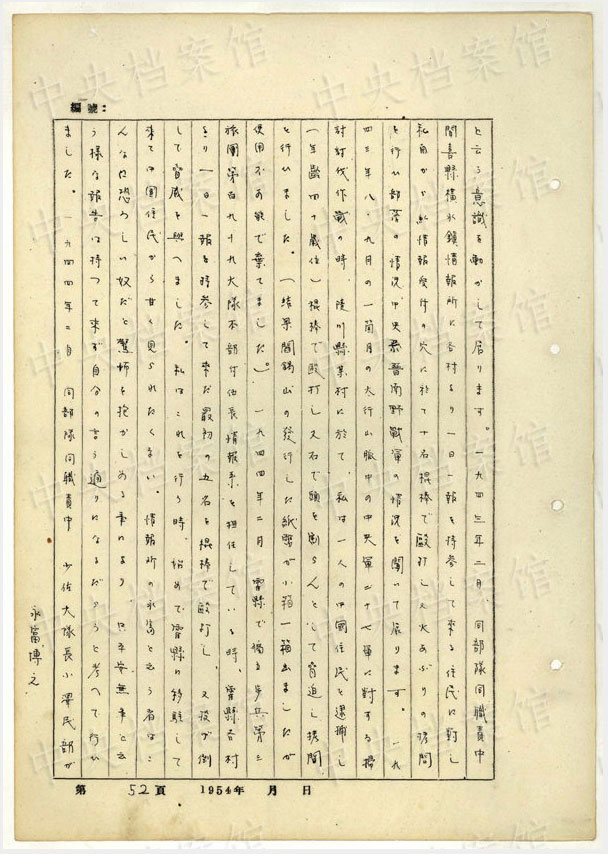 編號：
と云う意識を動かして居ります。一九四三年二月、同部隊同職責中
聞喜縣橫水鎮情報所に各村より一日一報を持参して来る住民に對し
私自から 情報受付の穴に於て十名棍棒で毆打し又火あぶりの拷問
を行い部落の情況中央系晋南野戰軍の情況を聞いて居ります。一九
四三年八、九月の一箇月の大行山脈中の中央軍二十七軍に對する掃
討討伐作戰の時、陵川縣某村に於て、私は一人の中國住民を逮捕し
(年齢四十歳位)棍棒で毆打し又石で頭を割らんとして脅迫し拷問
を行いました。(結果閻錫山の發行した紙幣が小箱一箱出ましたが
使用不可能で棄てました)。一九四四年二月 霍縣で独立歩兵第三
旅團第百九十九大隊本部付伍長情報系を担任している時、霍縣各村
より一日一報を持参して来た最初の五名を棍棒で毆打し、又投げ倒
して脅威を與へました。私はこれを行う時、始めて霍縣に移駐して
来て中国住民から甘く見られたくない。情報所の永富と云う者はこ
んなに恐ろしい奴だと驚怖を抱かしめる事により 只平安無事と云
う様な報告は持つて来ず自分の言う通りになるだろうと考へて行い
ました。一九四四年二月 同部隊同職責中 少佐大隊長小澤民部が
永富博之
第 52 頁 1954年 月 日
中央档案馆